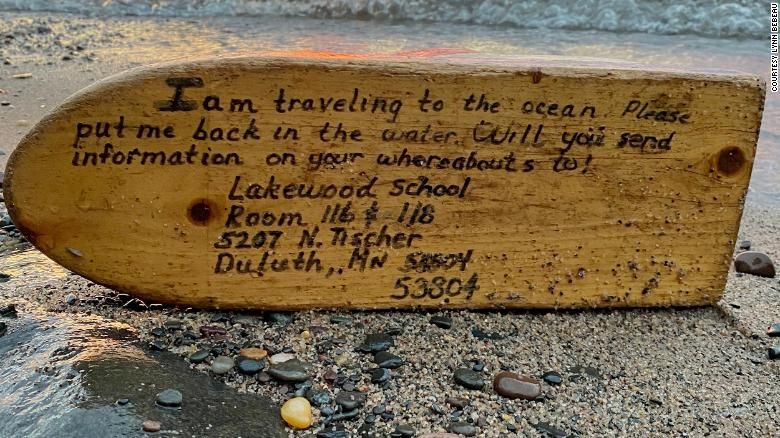 I am traveling to the ocean. Please
put me back in the water. Will you send
information on your whereabouts to!
Lakewood School
Room 116 & 118
5207 N. Tischer
Duluth, MN 55804
53804
COURTESY LYNN BEBEAU